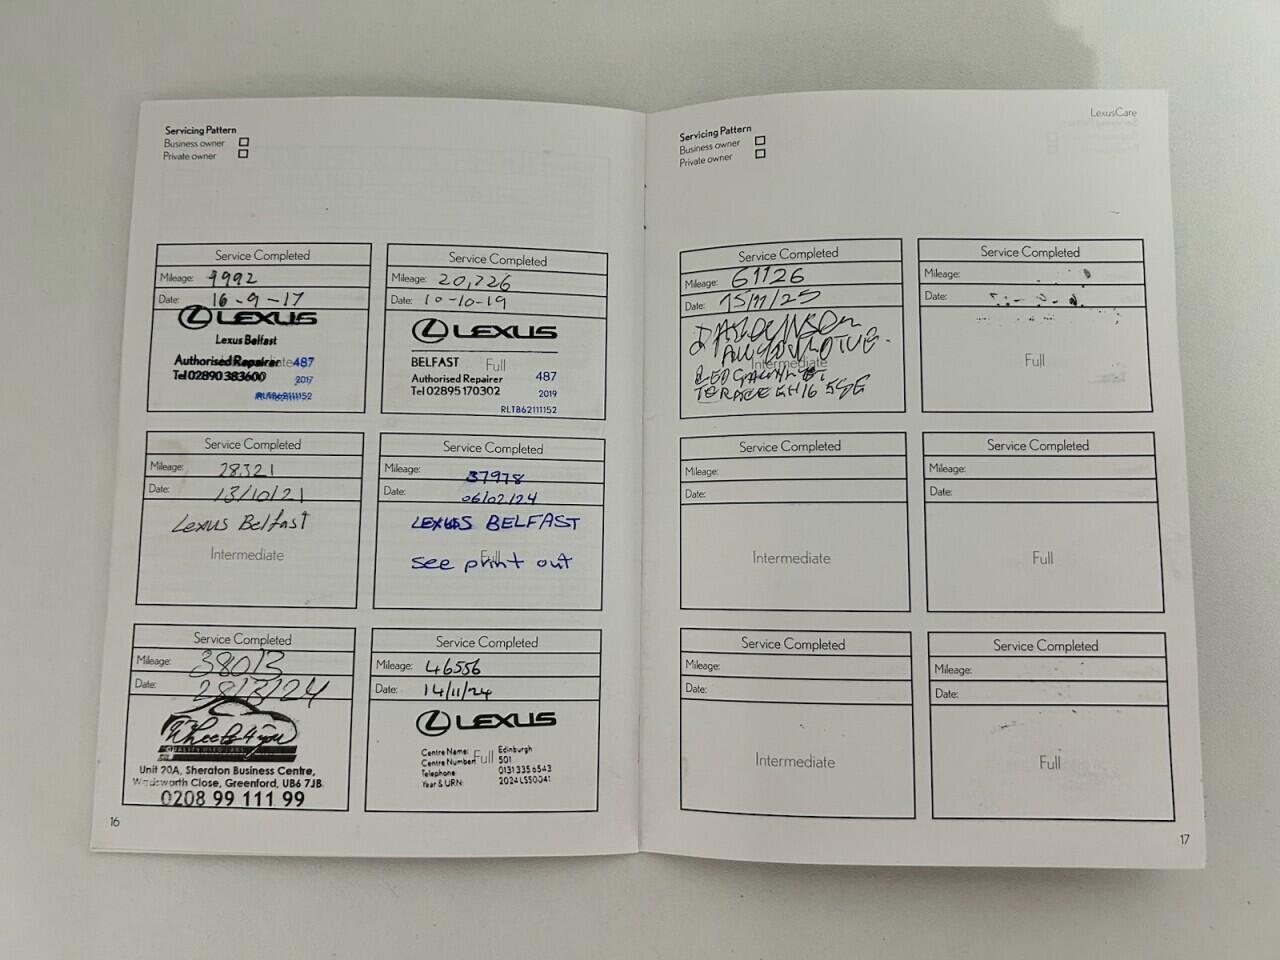 Servicing Pattern
Business owner
Private owner
Service Completed
Mileage: 9992
Date: 16-9-17
LEXUS
Lexus Belfast
Authorised Repairer 487
Tel 02890 383600 2017
RLTB62111152
Service Completed
Mileage: 20,726
Date: 10-10-19
LEXUS
BELFAST Full
Authorised Repairer 487
Tel 02895 170302 2019
RLTB62111152
Service Completed
Mileage: 28321
Date: 13/10/21
Lexus Belfast
Intermediate
Service Completed
Mileage: 37978
Date: 06/02/24
LEXUS BELFAST
Full
see print out
Service Completed
Mileage: 38013
Date: 28/3/24
Wheels4you
QUALITY USED CARS
Unit 20A, Sheraton Business Centre,
Wadsworth Close, Greenford, UB6 7JB.
0208 99 111 99
Service Completed
Mileage: 46556
Date: 14/11/24
LEXUS
Centre Name: Edinburgh
Centre Number: Full 501
Telephone
Year & URN: 2024LS50041
16
LexusCare
Servicing Pattern
Business owner
Private owner
Service Completed
Mileage: 61126
Date: 15/11/25
Intermediate
EH16 5SE
Service Completed
Mileage:
Date:
Full
Service Completed
Mileage:
Date:
Intermediate
Service Completed
Mileage:
Date:
Full
Service Completed
Mileage:
Date:
Intermediate
Service Completed
Mileage:
Date:
Full
17